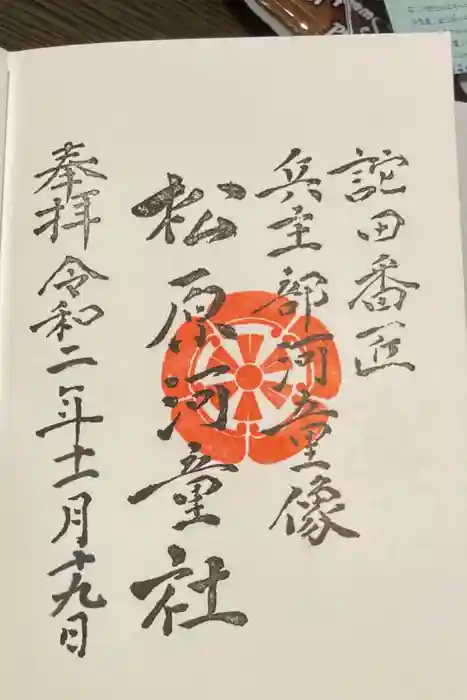 詫田番匠
兵主部河童像
松原河童社
奉拝 令和二年十一月十九日